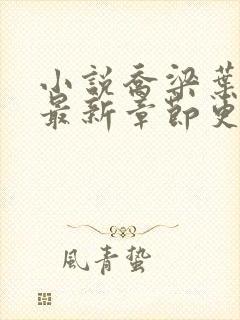 小說喬梁葉
最新章節更
風青蟄